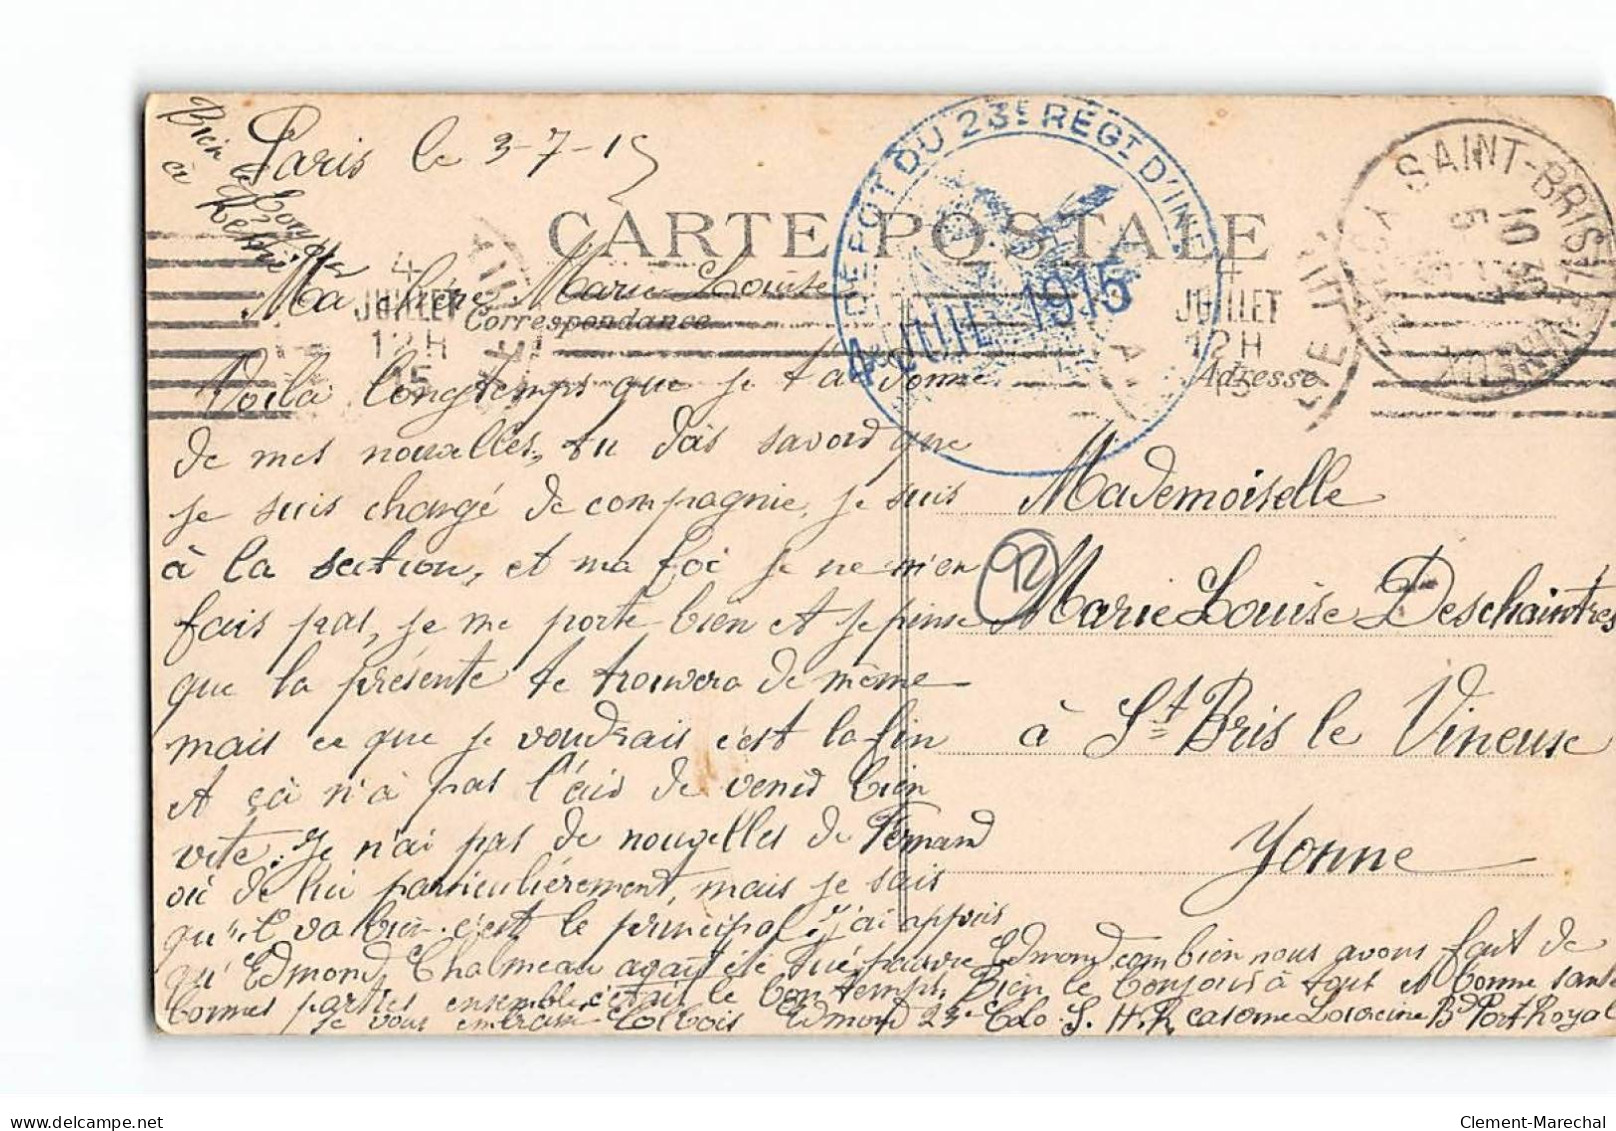 Bien le
à
Paris le 3-7-15
CARTE POSTALE
DEPOT DU 23E REGT D'INF
4 JUIL 1915
SAINT-BRIS
10 35
5
YONNE
4
JUILLET
12H
15
4
JUILLET
12H
15
Correspondance
Adresse
Ma chère Marie Louise
Voilà longtemps que je t'ai donné
de mes nouvelles, tu dois savoir que
je suis changé de compagnie, je suis
à la section, et ma foi je ne m'en
fais pas, je me porte bien et je pense
que la présente te trouvera de même
mais ce que je voudrais c'est la fin
et çà n'à pas l'air de venir bien
vite. Je n'ai pas de nouvelles de Fernand
où de lui particulièrement, mais je sais
qu'il va bien c'est le principal. J'ai appris
qu'Edmond Chalmeau avait été tué pauvre Edmond combien nous avons fait de
bonnes parties ensemble c'était le bon temps. Bien le bonjour à tout et bonne santé
Je vous embrasse Edmond 23e S. H. R caserne Lourcine Bd Port Royal
Mademoiselle
Marie Louise Deschaintres
à St Bris le Vineuse
Yonne
Clement-Marechal
delcampe.net